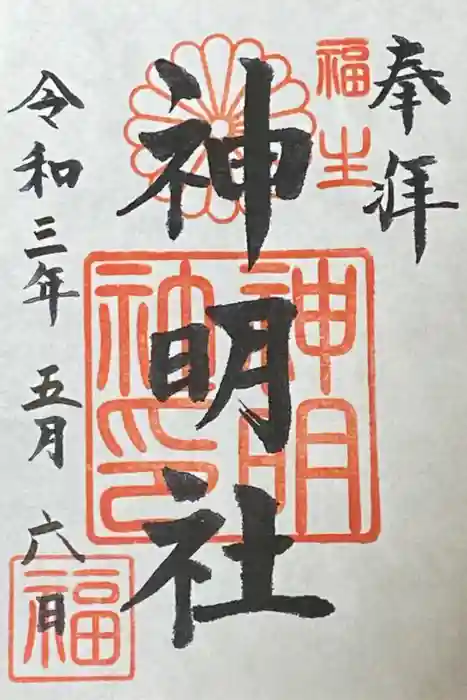 奉拝
福生
神明社
神明
社印
令和三年 五月 六日
福